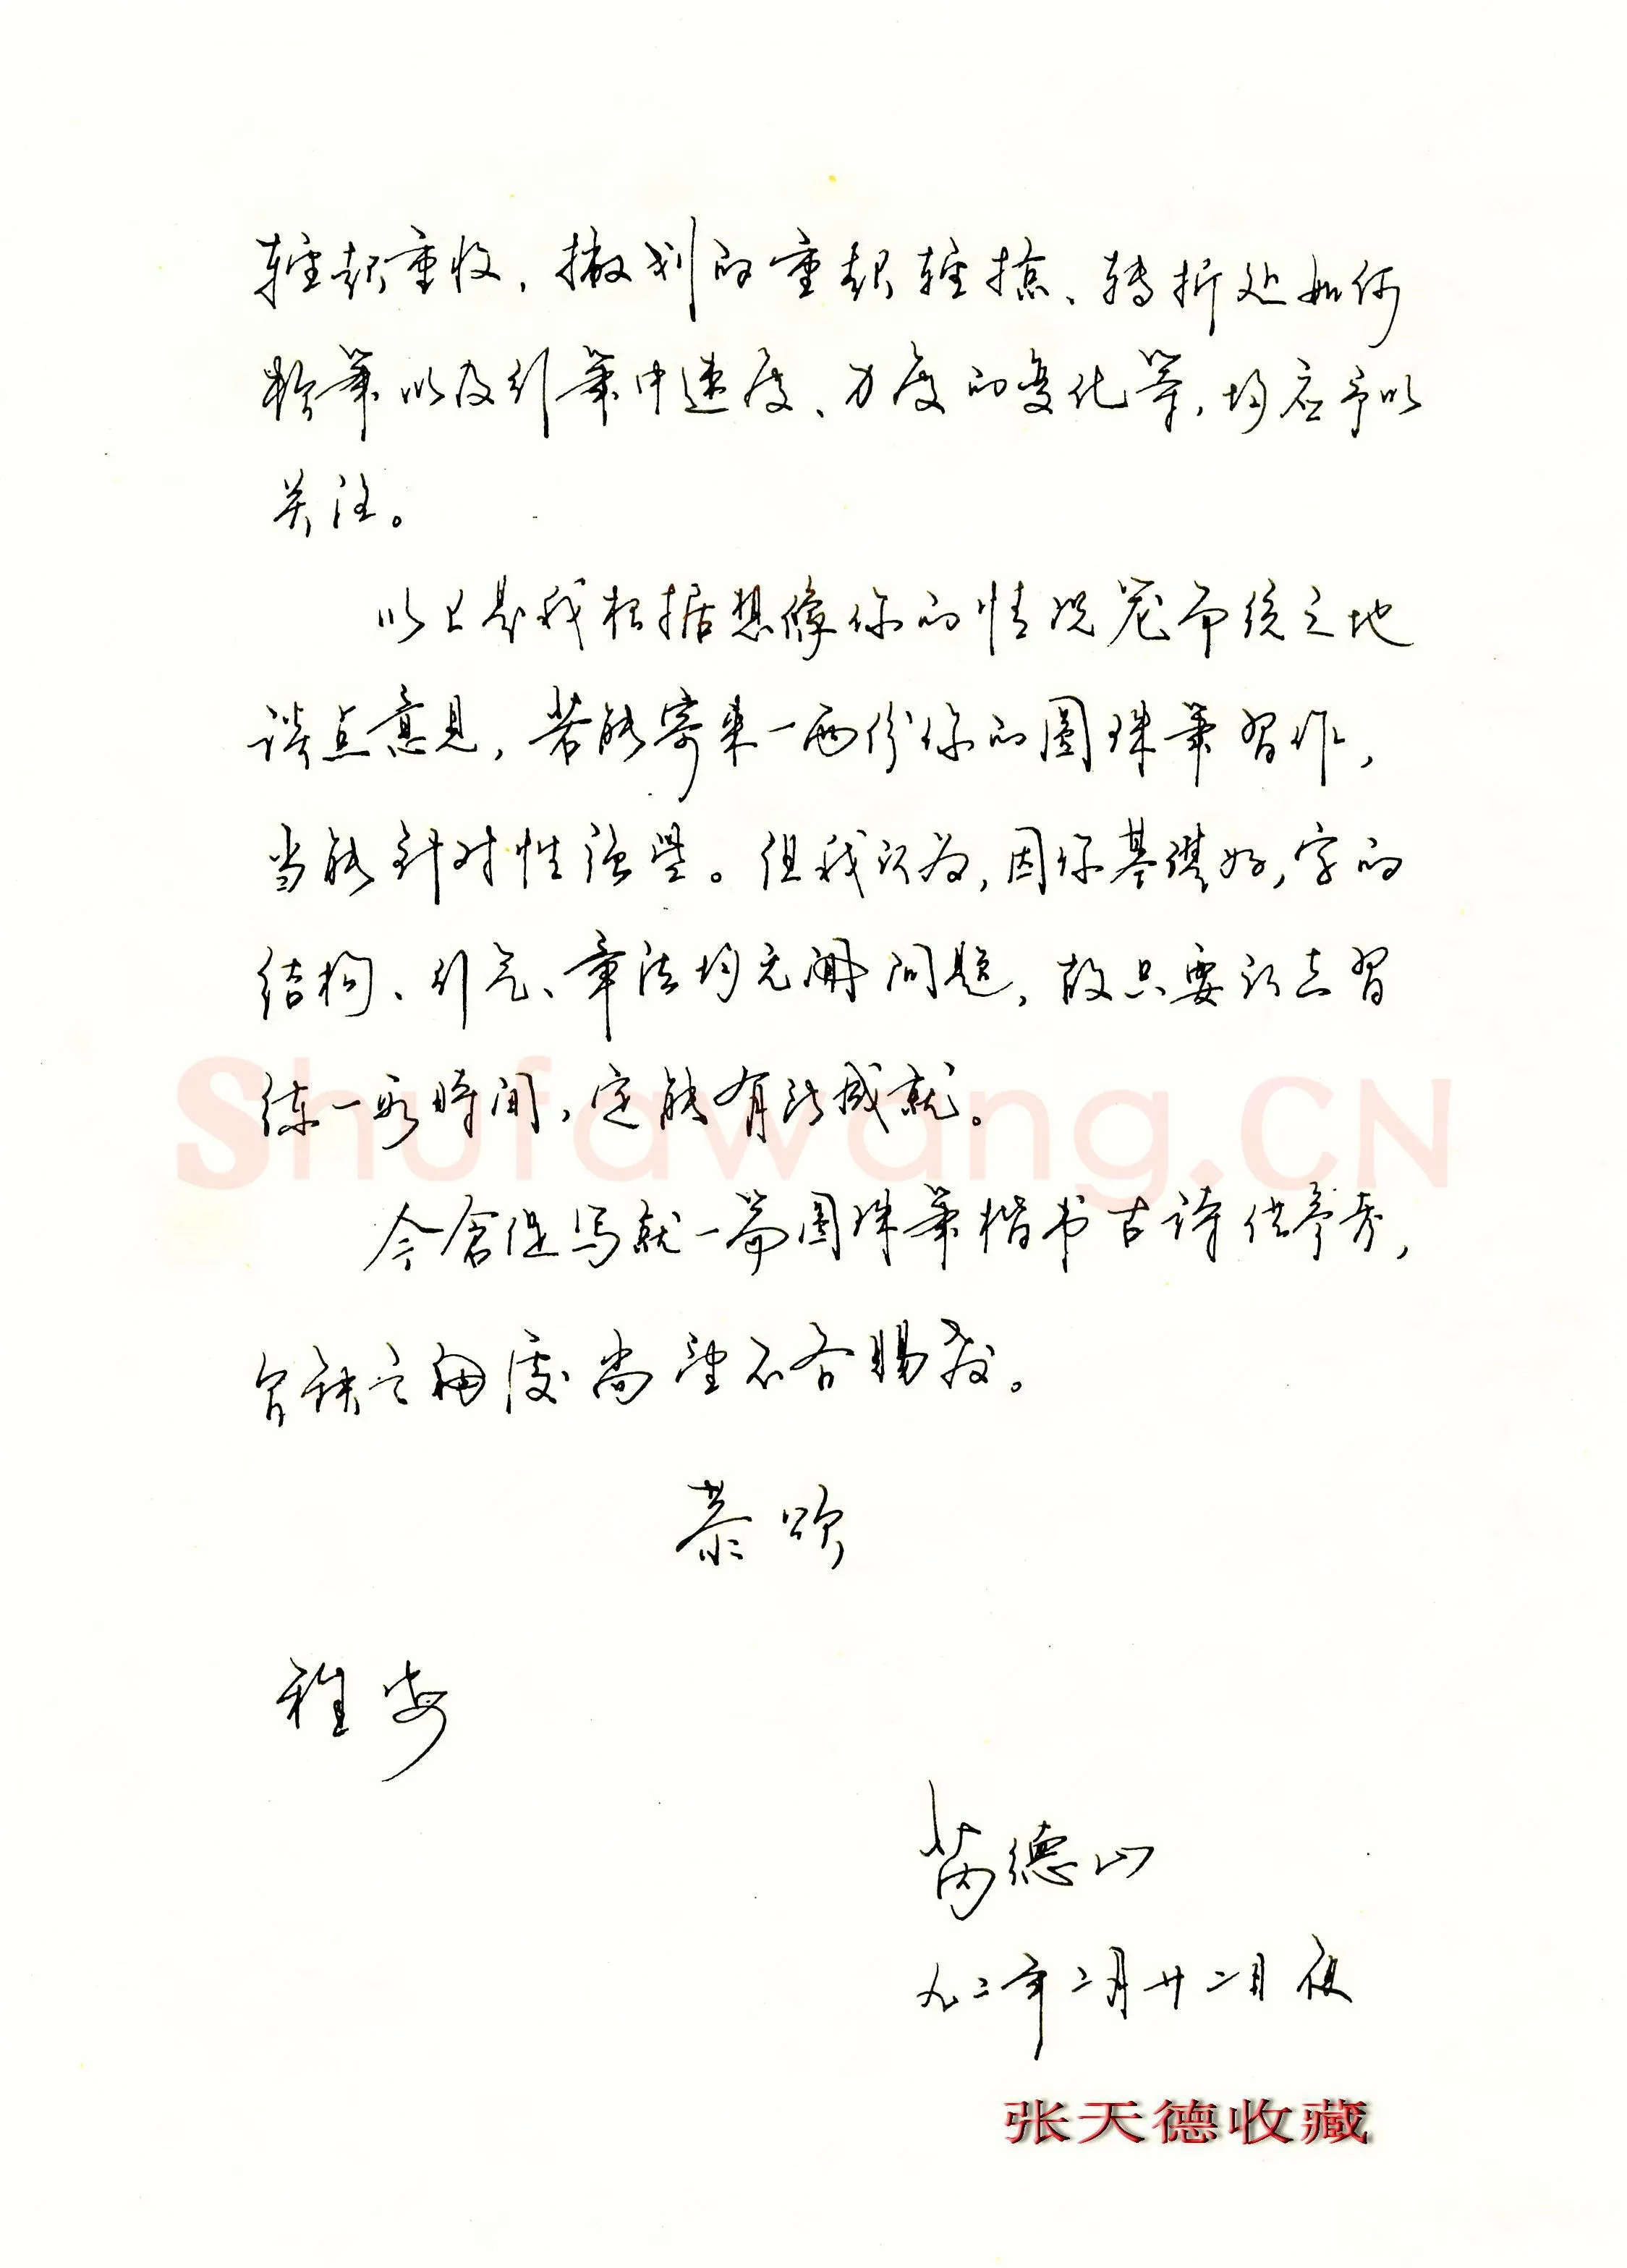 轻起重收，撇划的重起轻掠、转折处如何
笔以及行笔中速度、力度的变化等，均应予以
关注。
以上是我根据想像你的情况笼而统之地
谈点意见，若能寄来一两份你的圆珠笔习作，
当能针对性强些。但我认为，因你基础好，字的
结构、行气、章法均无问题，故只要认真习
练一段時间，定能有所成就。
Shufawang.CN
今仓促写就一篇圆珠笔楷书古诗供参考，
缺之處尚望不吝赐教。
恭颂
雅安
芮德山
九二年二月廿二日夜
张天德收藏